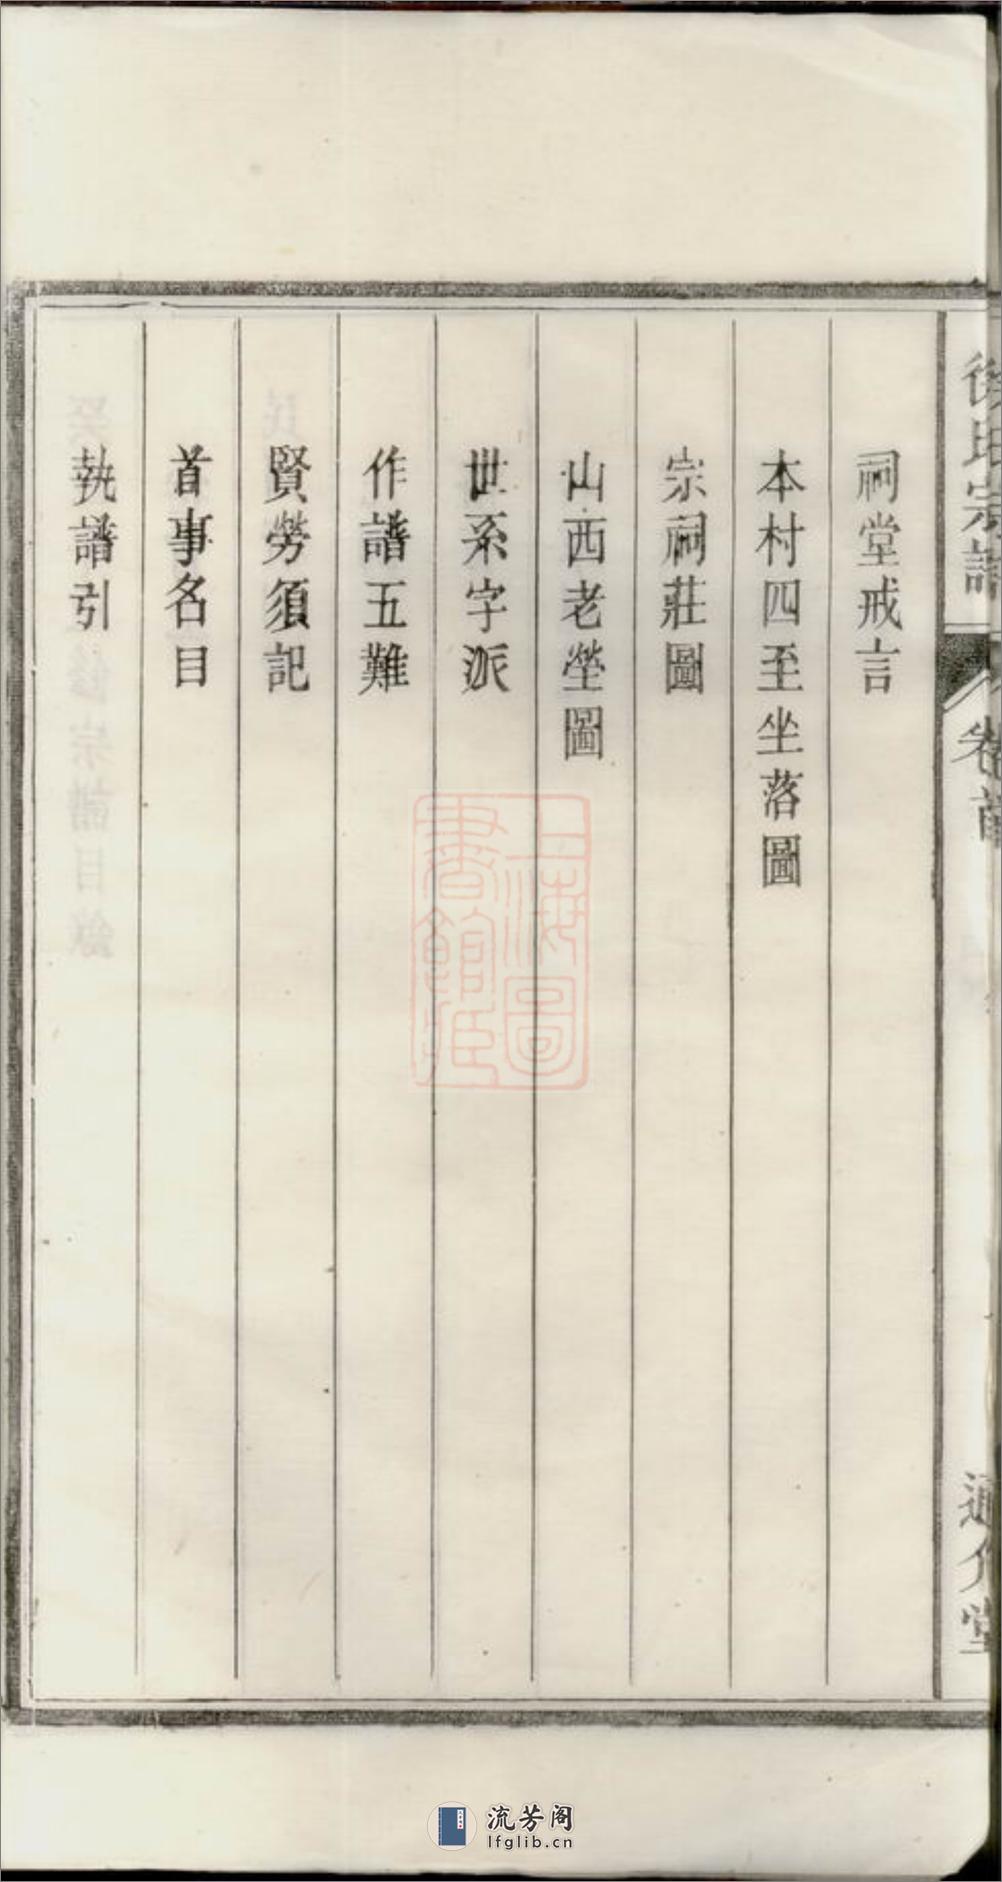 祠堂戒言
本村四至坐落圖
宗祠莊圖
山西老塋圖
世系字派
作譜五難
賢勞須記
首事名目
執譜引
氏宗譜
卷首
堂
上海圖
書館藏
流芳阁
lfglib.cn